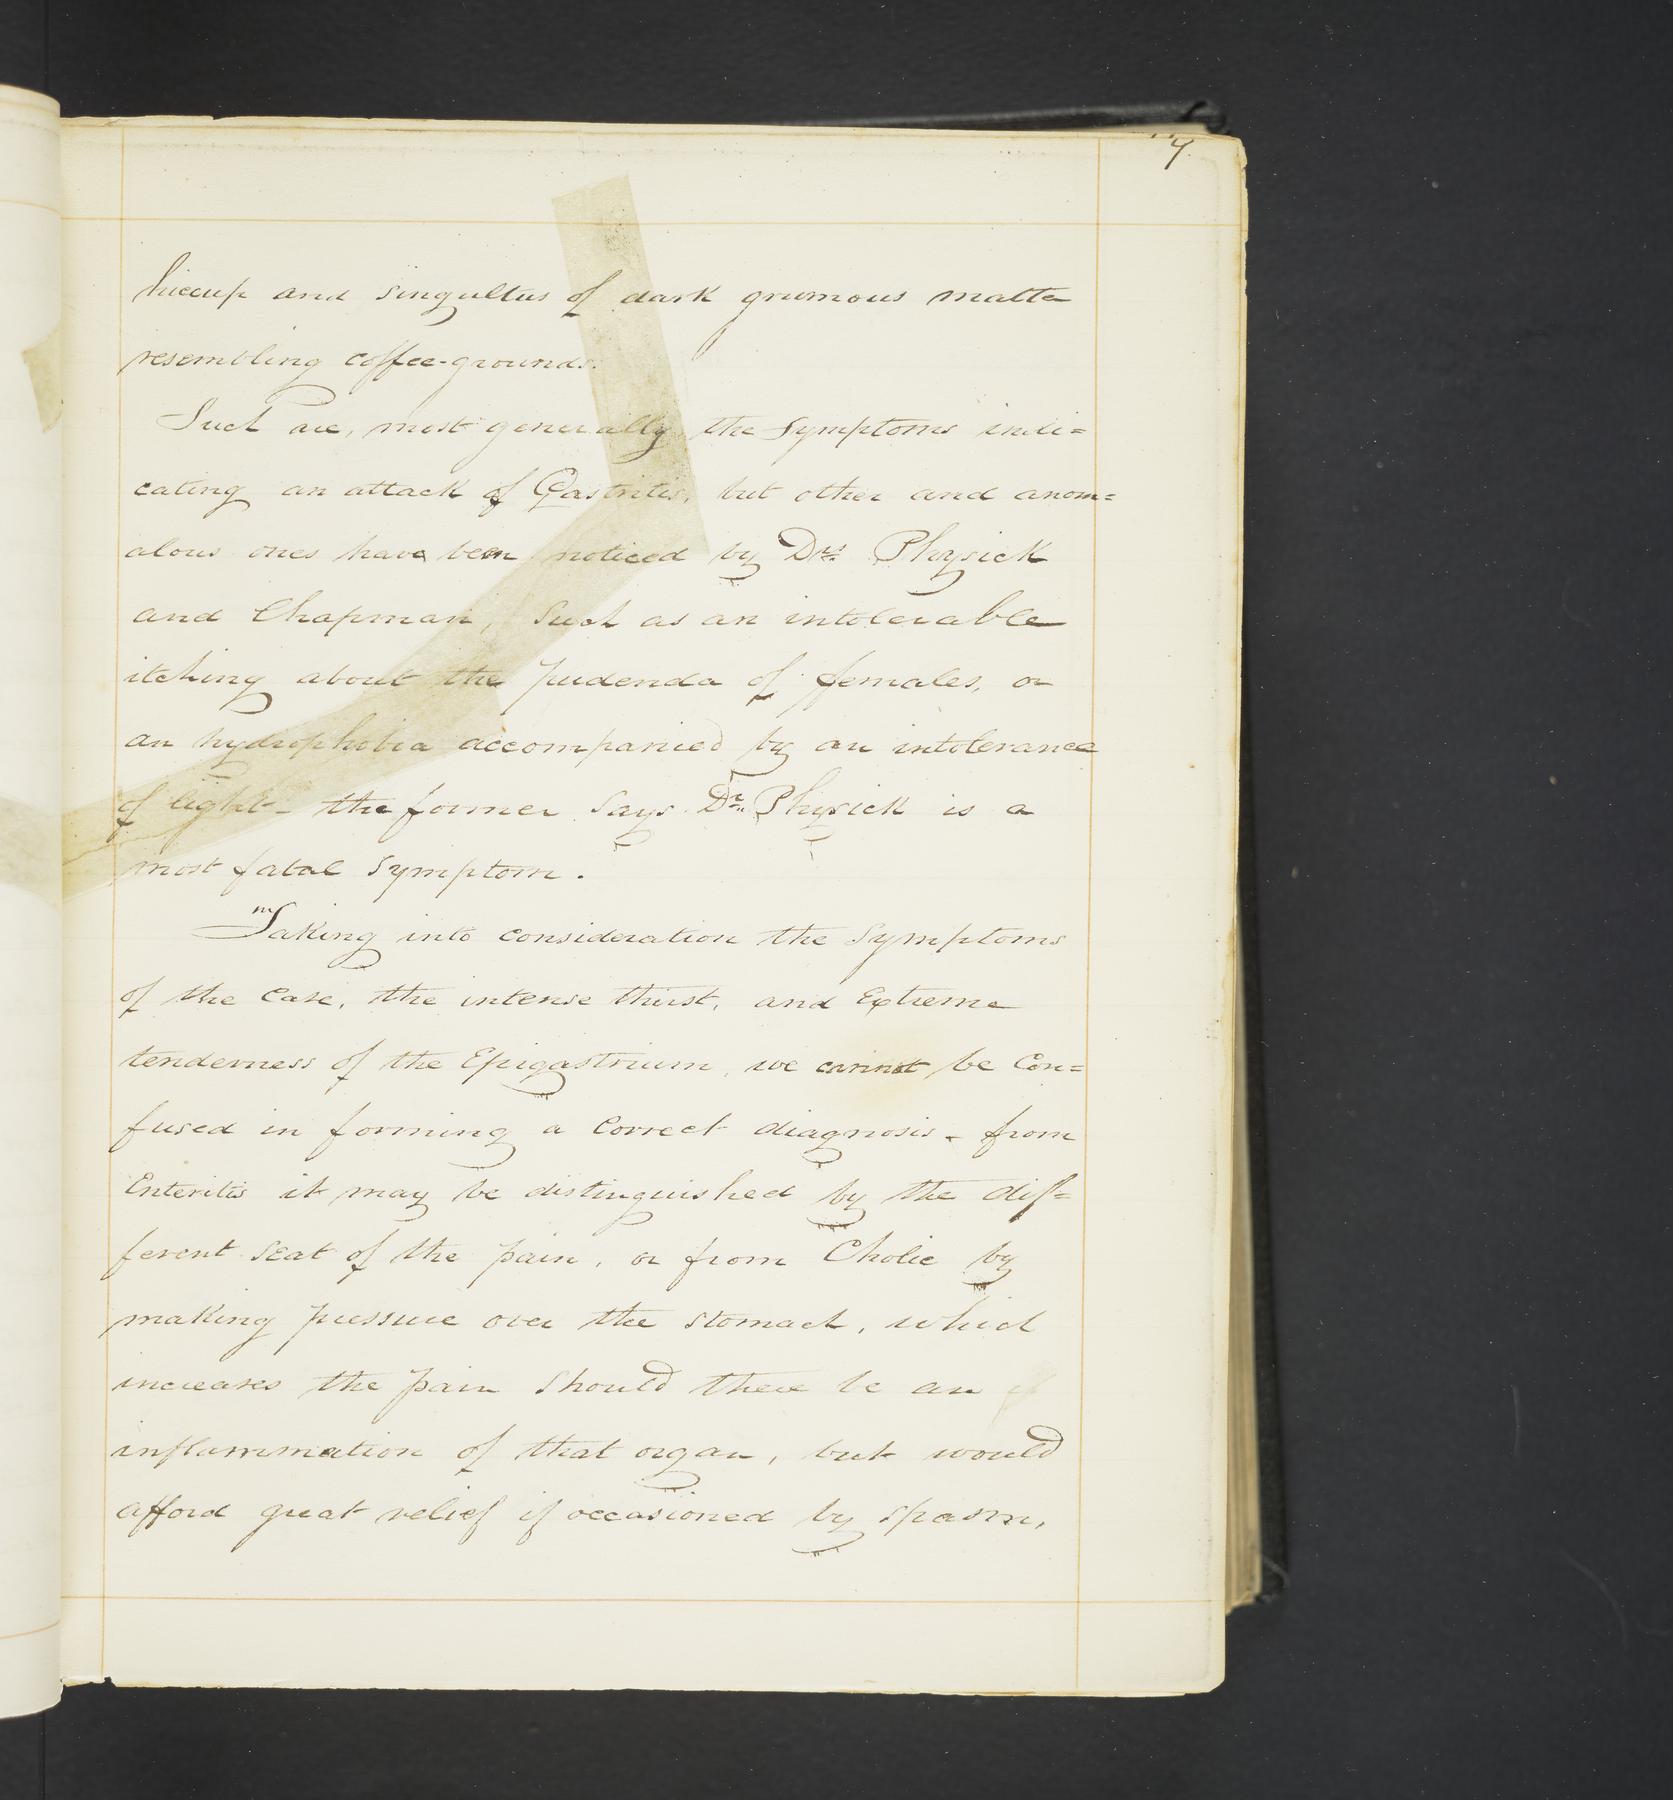 9
hiccup and singultus of dark grumous matte
resembling coffee-grounds.
Such are, most generally the symptoms indi=
cating an attack of Gastritis, but other and anom=
alous ones have been noticed by Drs. Physick
and Chapman, such as an intolerable
itching about the pudenda of females, or
an hydrophobia accompanied by an intolerance
of light - the former says Dr. Physick is a
most fatal symptom.
Taking into consideration the symptoms
of the case, the intense thirst, and extreme
tenderness of the Epigastrium, we cannot be Con=
fused in forming a correct diagnosis - from
Enteritis it may be distinguished by the dif=
ferent seat of the pain, or from Cholic by
making pressure over the stomach, which
increases the pain should there be an
inflammation of that organ, but would
afford great relief if occasioned by spasm,